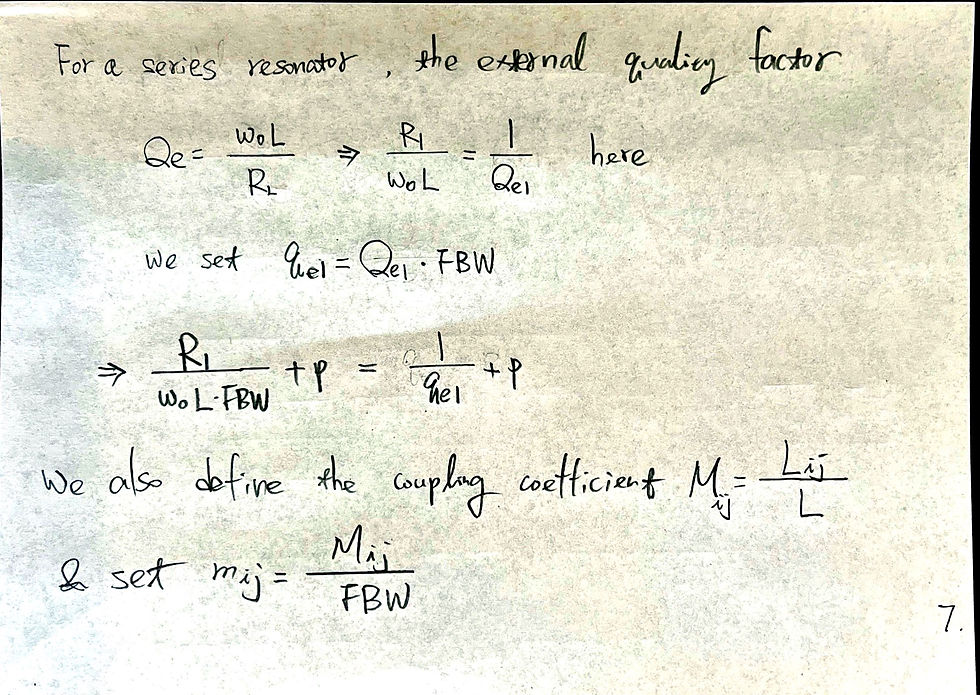 For a series resonator, the external quality factor
Qe = ω₀L / R_L ⇒ R₁ / ω₀L = 1 / Qe1 here
we set qe1 = Qe1 · FBW
⇒ R₁ / ω₀L·FBW + p = 1 / qe1 + p
We also define the coupling coefficient Mij = Lij / L
& set mij = Mij / FBW
7.